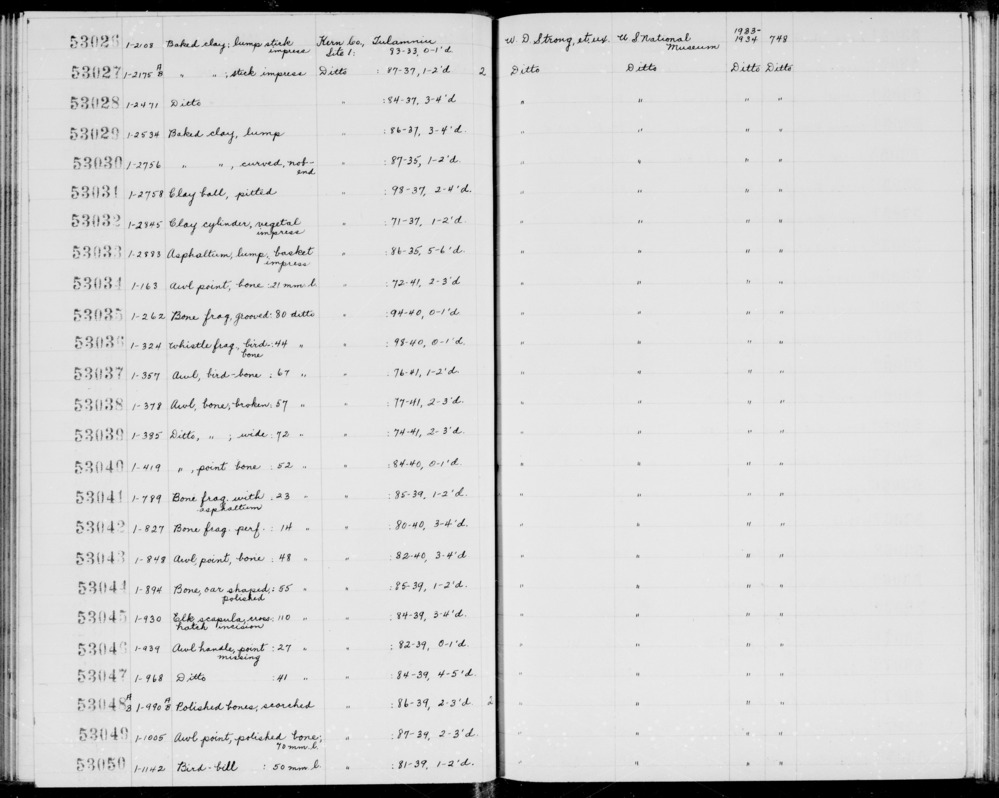 53026 1-2108 Baked clay; lump stick impress Kern Co., Site 1: Tulamniu 83-33, 0-1'd W. D. Strong, et. ux. U S National Museum 1933-1934 748
53027 1-2175 A B " " ; stick impress Ditto : 87-37, 1-2'd 2 Ditto Ditto Ditto Ditto
53028 1-2471 Ditto " : 84-37, 3-4'd " " " "
53029 1-2534 Baked clay, lump " : 86-37, 3-4'd. " " " "
53030 1-2756 " " , curved, not-end " : 87-35, 1-2'd. " " " "
53031 1-2758 Clay ball, pitted " : 98-37, 2-4'd. " " " "
53032 1-2845 Clay cylinder, vegetal impress " : 71-37, 1-2'd. " " " "
53033 1-2883 Asphaltum, lump, basket impress " : 86-35, 5-6'd. " " " "
53034 1-163 Awl point, bone : 21 mm. l. " : 72-41, 2-3'd " " " "
53035 1-262 Bone frag, grooved : 80 ditto " : 94-40, 0-1'd " " " "
53036 1-324 Whistle frag., bird-bone : 44 " " : 98-40, 0-1'd. " " " "
53037 1-357 Awl, bird-bone : 67 " " : 76-41, 1-2'd. " " " "
53038 1-378 Awl, bone, broken : 57 " " : 77-41, 2-3'd. " " " "
53039 1-395 Ditto, " ; wide : 72 " " : 74-41, 2-3'd. " " " "
53040 1-419 " , point bone : 52 " " : 84-40, 0-1'd. " " " "
53041 1-789 Bone frag. with asphaltum : 23 " " : 85-39, 1-2'd. " " " "
53042 1-827 Bone frag. perf. : 14 " " : 80-40, 3-4'd. " " " "
53043 1-848 Awl point, bone : 48 " " : 82-40, 3-4'd. " " " "
53044 1-894 Bone, oar shaped, polished : 55 " " : 85-39, 1-2'd. " " " "
53045 1-930 Elk scapula, cross-hatch incision : 110 " " : 84-39, 3-4'd. " " " "
53046 1-939 Awl handle, point missing : 27 " " : 82-39, 0-1'd. " " " "
53047 1-968 Ditto : 41 " " : 84-39, 4-5'd. " " " "
53048 A B 1-990 A B Polished bones, scorched " : 86-39, 2-3'd. 2 " " " "
53049 1-1005 Awl point, polished bone, 70 mm. l. " : 87-39, 2-3'd. " " " "
53050 1-1142 Bird-bill : 50 mm. l. " : 81-39, 1-2'd. " " " "